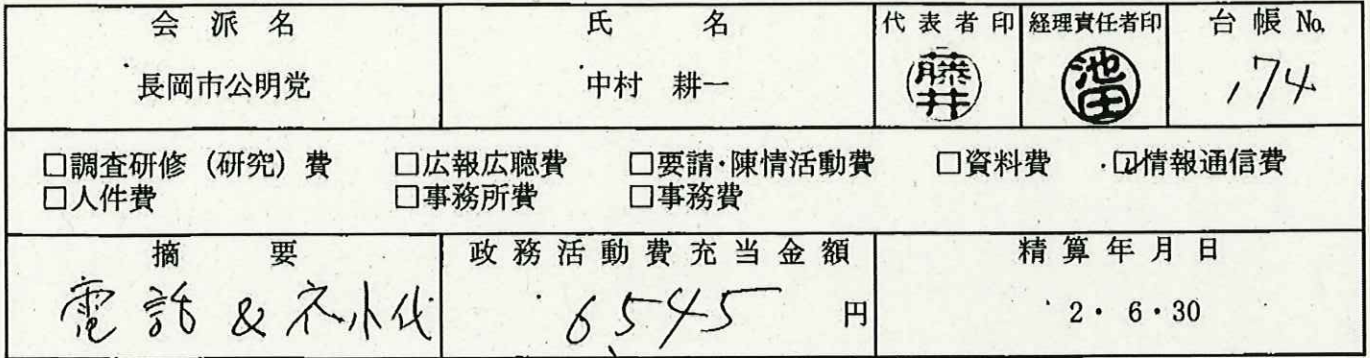 会派名 氏名 代表者印 経理責任者印 台帳No.
長岡市公明党 中村 耕一 藤井 池田 174
□調査研修(研究)費 □広報広聴費 □要請・陳情活動費 □資料費 ☑情報通信費
□人件費 □事務所費 □事務費
摘要 政務活動費充当金額 精算年月日
電話&ネット代 6545 円 2・6・30